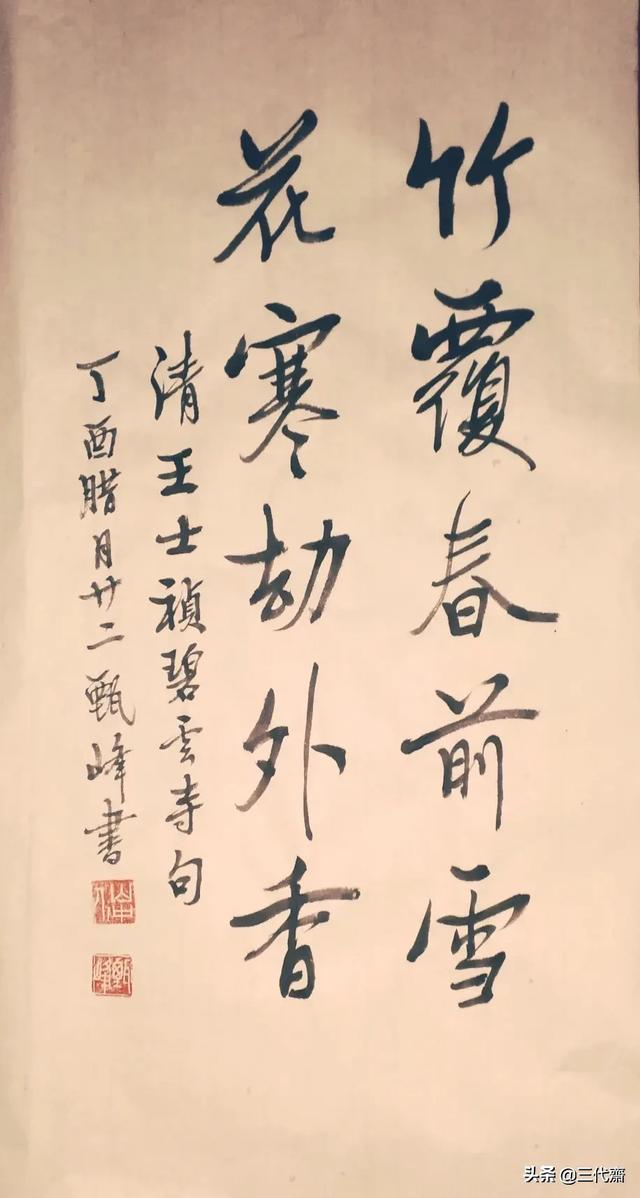 竹覆春前雪
花寒劫外香
清王士禎碧雲寺句
丁酉腊月廿二甄峰書
甄峰
头条 @三代齋